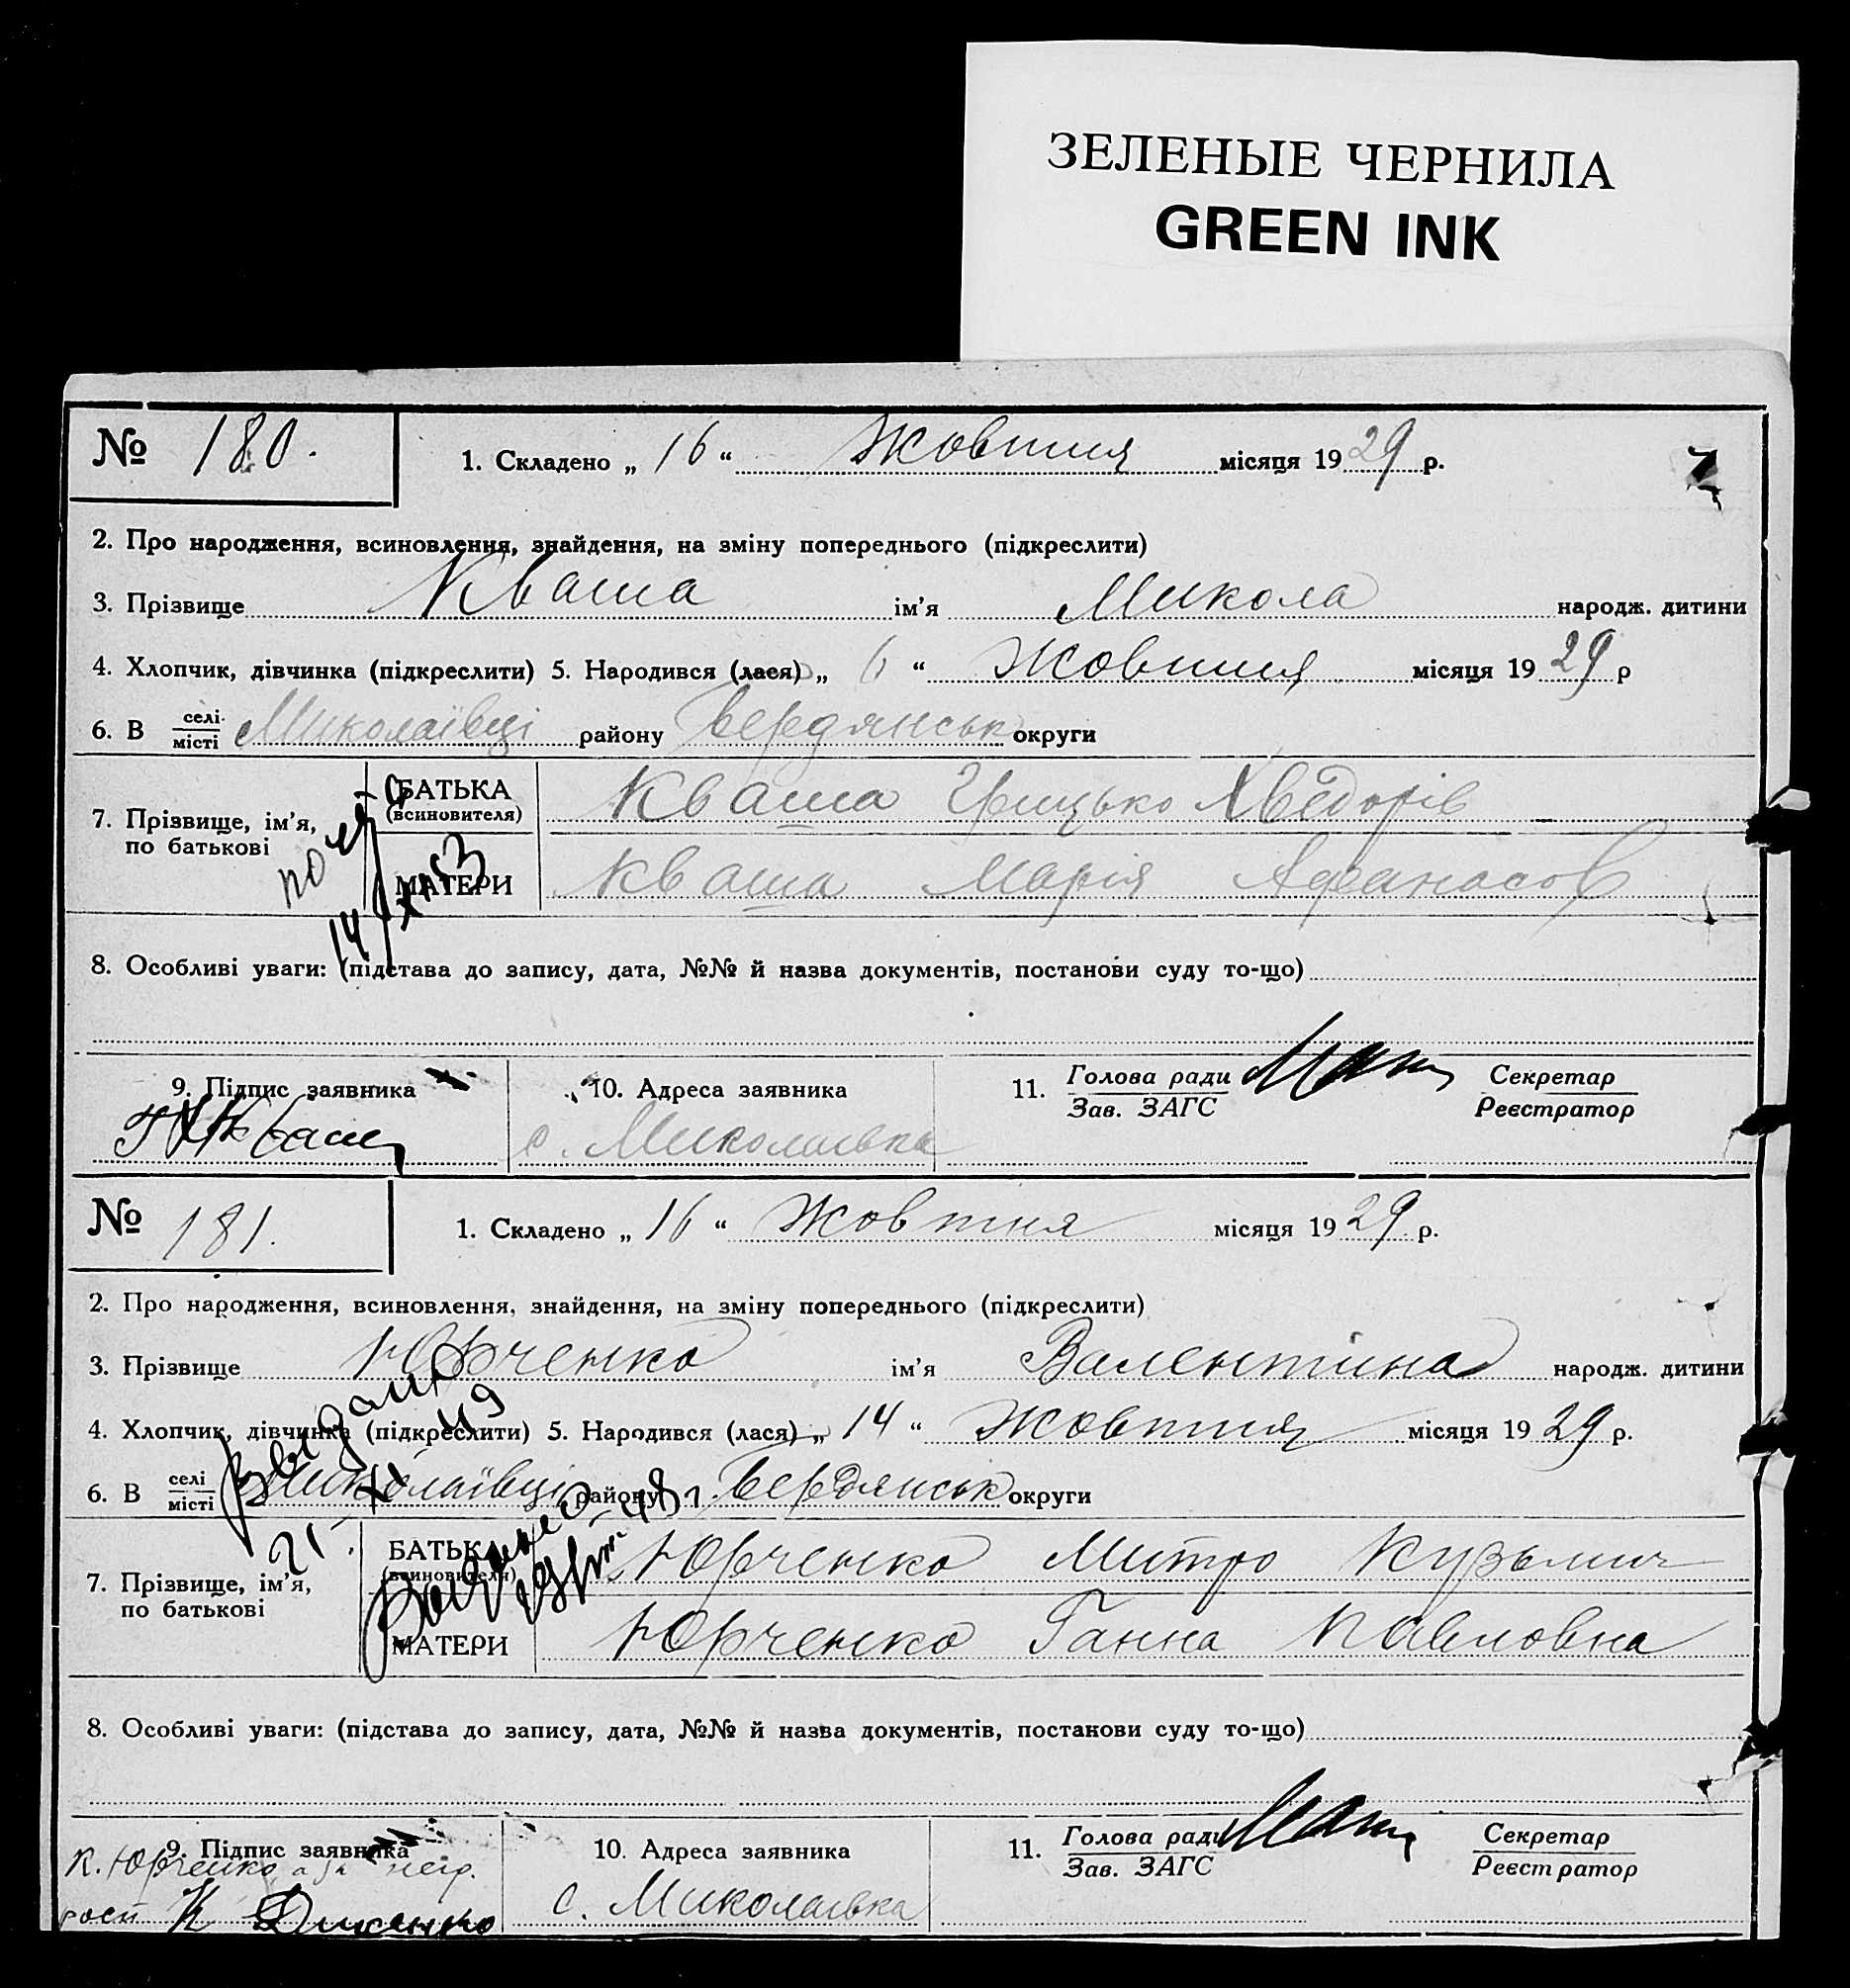 ЗЕЛЕНЫЕ ЧЕРНИЛА
GREEN INK
№ 180.
1. Складено „ 16 “ Жовтня місяця 1929 р.
2. Про народження, всиновлення, знайдення, на зміну попереднього (підкреслити)
3. Прізвище Кваша ім’я Микола народж. дитини
4. Хлопчик, дівчинка (підкреслити) 5. Народився (лася) „ “ Жовтня місяця 1929 р
6. В селі місті Миколаївці району Бердянськ округи
7. Прізвище, ім’я, по батькові
БАТЬКА (всиновителя) Кваша Грицько Хведорів
МАТЕРИ Кваша Марія Афанасов
14
8. Особливі уваги: (підстава до запису, дата, №№ й назва документів, постанови суду то-що)
9. Підпис заявника 10. Адреса заявника 11. Голова ради Зав. ЗАГС Секретар Реєстратор
с. Миколаивка
№ 181.
1. Складено „ 16 “ Жовтня місяця 1929 р.
2. Про народження, всиновлення, знайдення, на зміну попереднього (підкреслити)
3. Прізвище Юрченко ім’я Валентина народж. дитини
4. Хлопчик, дівчинка (підкреслити) 5. Народився (лася) „ 14 “ Жовтня місяця 1929 р.
6. В селі місті Миколаївці району Бердянськ округи
7. Прізвище, ім’я, по батькові
БАТЬКА (всиновителя) Юрченко Митро Кузьмич
МАТЕРИ Юрченко Ганна Павловна
8. Особливі уваги: (підстава до запису, дата, №№ й назва документів, постанови суду то-що)
9. Підпис заявника 10. Адреса заявника 11. Голова ради Зав. ЗАГС Секретар Реєстратор
К. Юрченко
с. Миколаивка